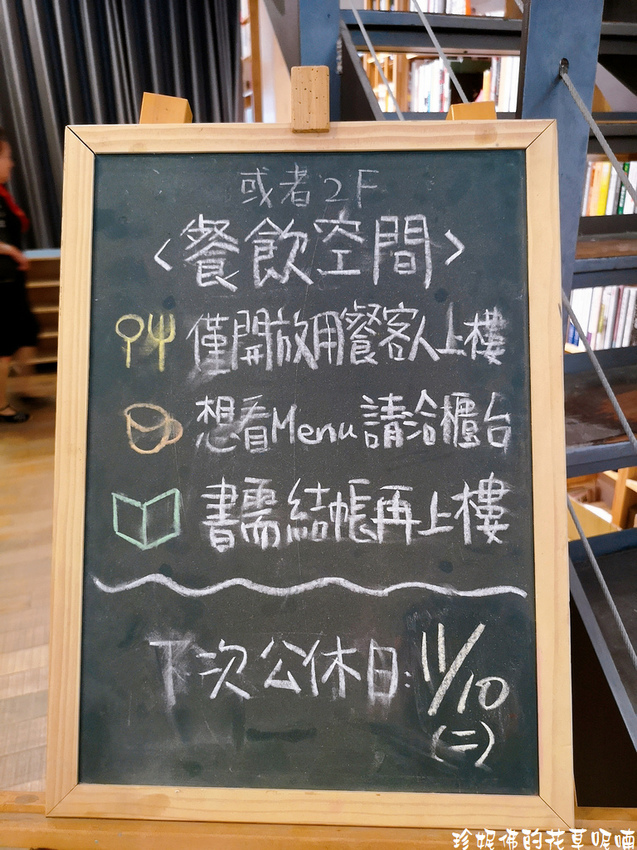 或者2F
<餐飲空間>
僅開放用餐客人上樓
想看Menu請洽櫃台
書需結帳再上樓
下次公休日:11/10
(二)
珍妮佛的花草呢喃